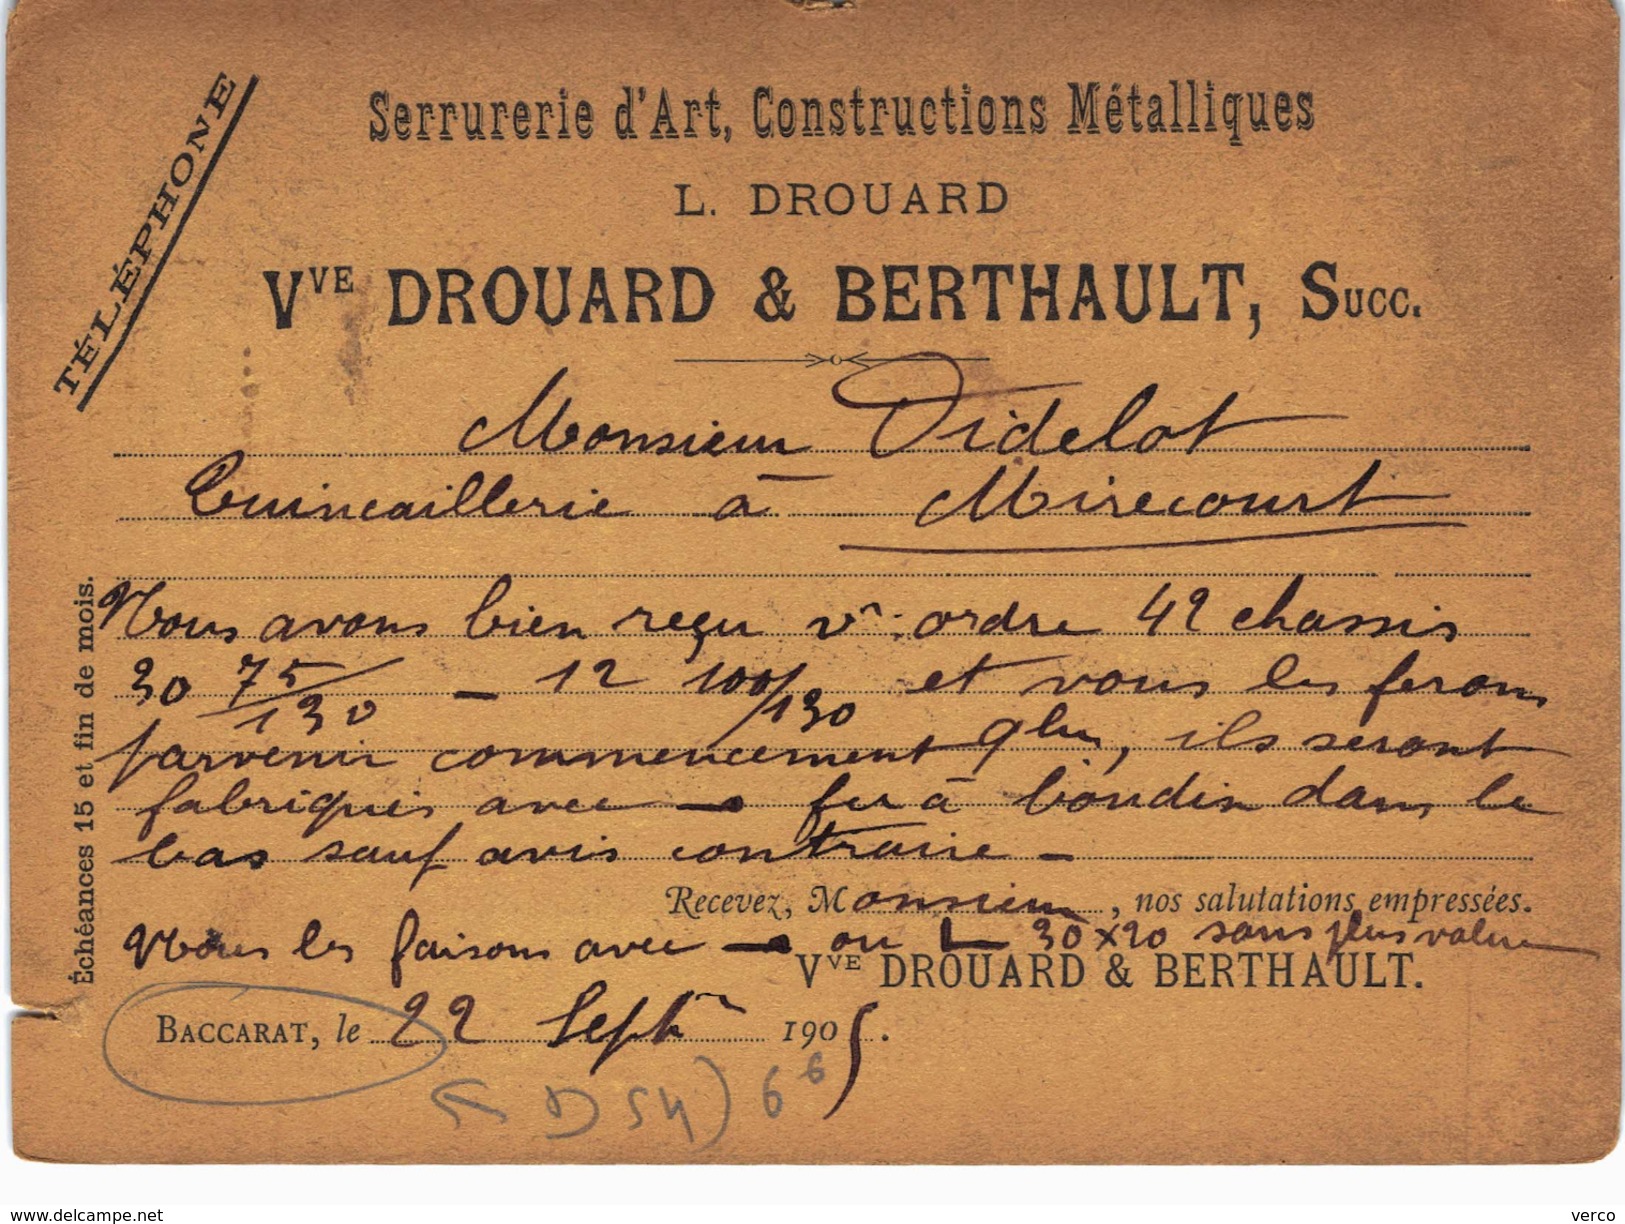 TÉLÉPHONE
Serrurerie d'Art, Constructions Métalliques
L. DROUARD
Vve DROUARD & BERTHAULT, Succ.
Monsieur Didelot
Quincaillerie à Mirecourt
Échéances 15 et fin de mois.
Nous avons bien reçu v. ordre 42 chassis
30 75/130 - 12 100/130 et vous les ferons
parvenir commencement , ils seront
fabriqués avec fer à boudin dans le
bas sauf avis contraire -
Recevez, Monsieur, nos salutations empressées.
Nous les faisons avec ou L 30 x 20 sans plus value
Vve DROUARD & BERTHAULT.
BACCARAT, le 22 Septbr 1905.
D54) 6 6
www.delcampe.net
verco